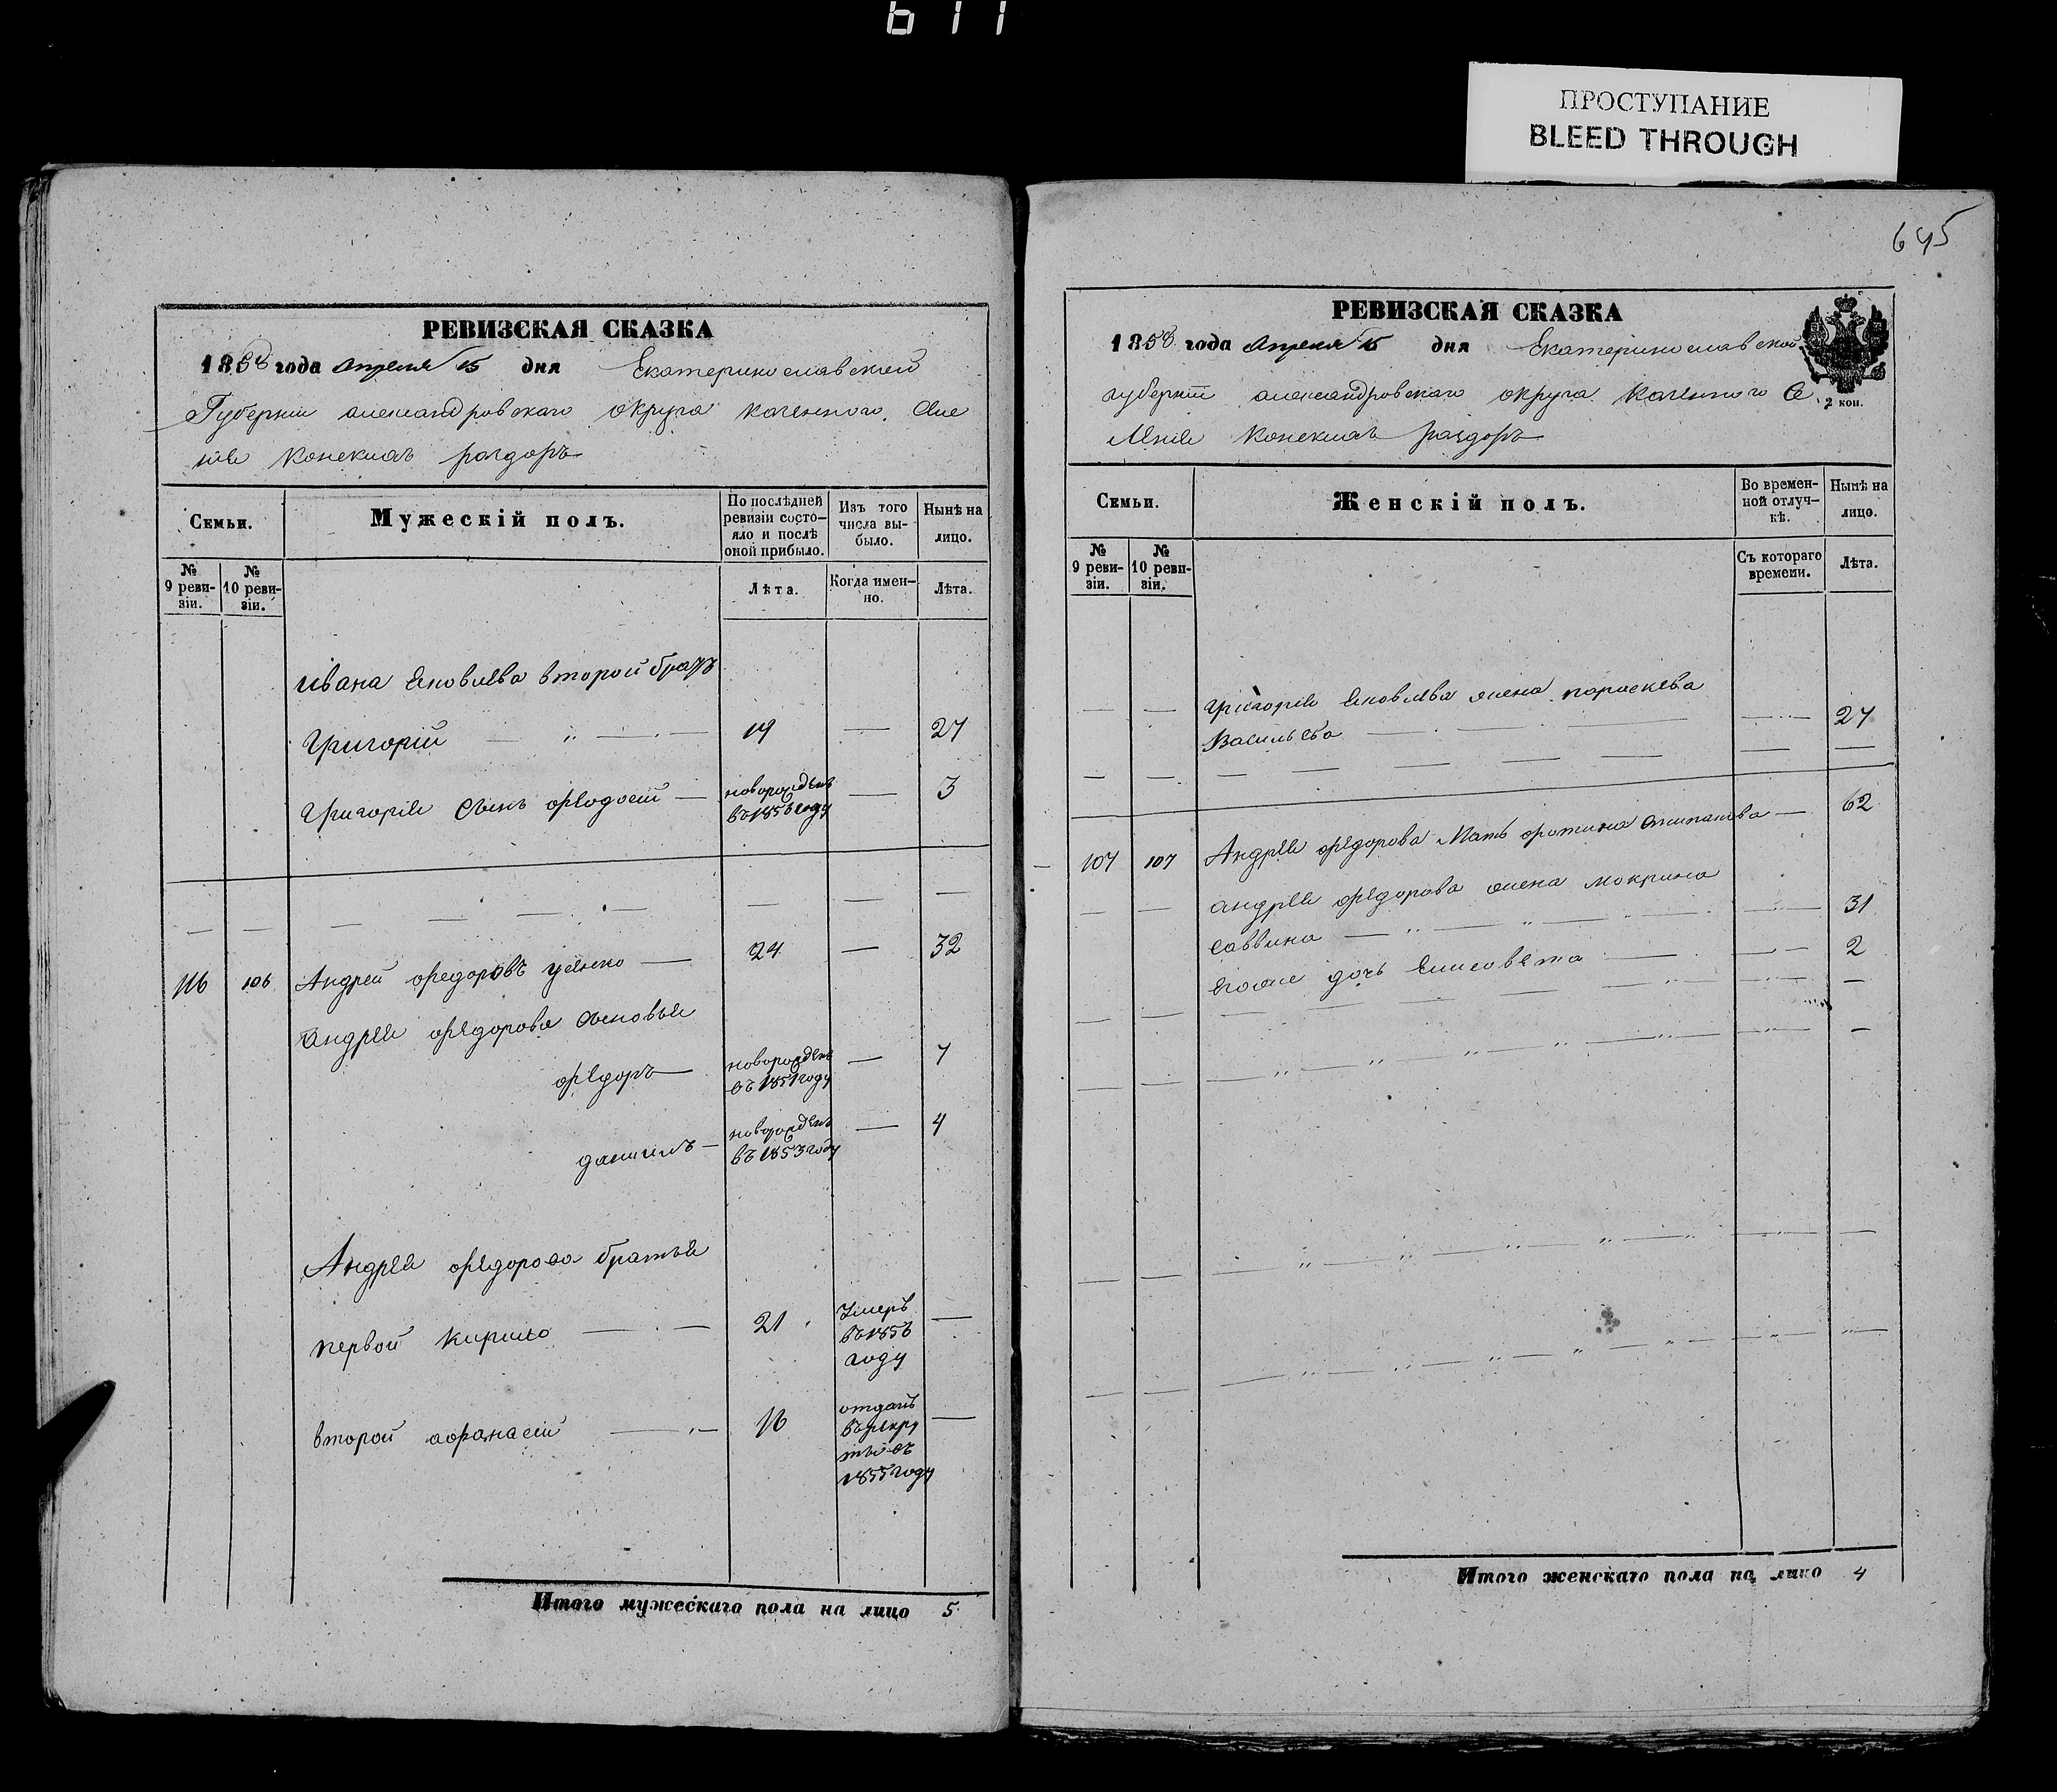 611
ПРОСТУПАНИЕ
BLEED THROUGH
645
РЕВИЗСКАЯ СКАЗКА
1858 года Апреля 15 дня Екатеринославской
Губерніи александровскаго округа казенного Селе
ніе Конекихъ раздоръ
Семьи.
Мужескій полъ.
По послѣдней ревизіи состо-
яло и послѣ оной прибыло.
Изъ того числа вы-
было.
Нынѣ на лицо.
№ 9 реви-
зіи.
№ 10 реви-
зіи.
Лѣта.
Когда имен-
но.
Лѣта.
ивана Яковлева второй братъ
Григорій — „ — 19 — 27
Григорія Сынъ фѣодосій — новорожденъ — 3
въ 1855 году
106 106 Андрей федоровъ — 24 — 32
андрея фѣдорова Сыновья
фѣдоръ — новорожденъ — 7
въ 1851 году
данилъ — новорожденъ — 4
въ 1853 году
Андрея фѣдорова братья
первой Кирило — 21 Умеръ —
въ 1856
году
второй афанасій — „ — 16 отданъ —
въ рекру
ты въ
1855 году
Итого мужескаго пола на лицо 5
РЕВИЗСКАЯ СКАЗКА
1858 года Апреля 15 дня Екатеринославской
губерніи александровскаго округа казенного Се
леніе Конекихъ раздоръ
2 коп.
Семьи.
Женскій полъ.
Во времен-
ной отлуч-
кѣ.
Нынѣ на лицо.
№ 9 реви-
зіи.
№ 10 реви-
зіи.
Съ котораго времени.
Лѣта.
Григорія Яковлева жена параскева
Васильева — 27
107 107 Андрея фѣдорова Мать фотина — 62
андрея фѣдорова жена мокрина
саввина — „ — „ — 31
Егоже дочь Елисовета — 2
Итого женскаго пола на лицо 4